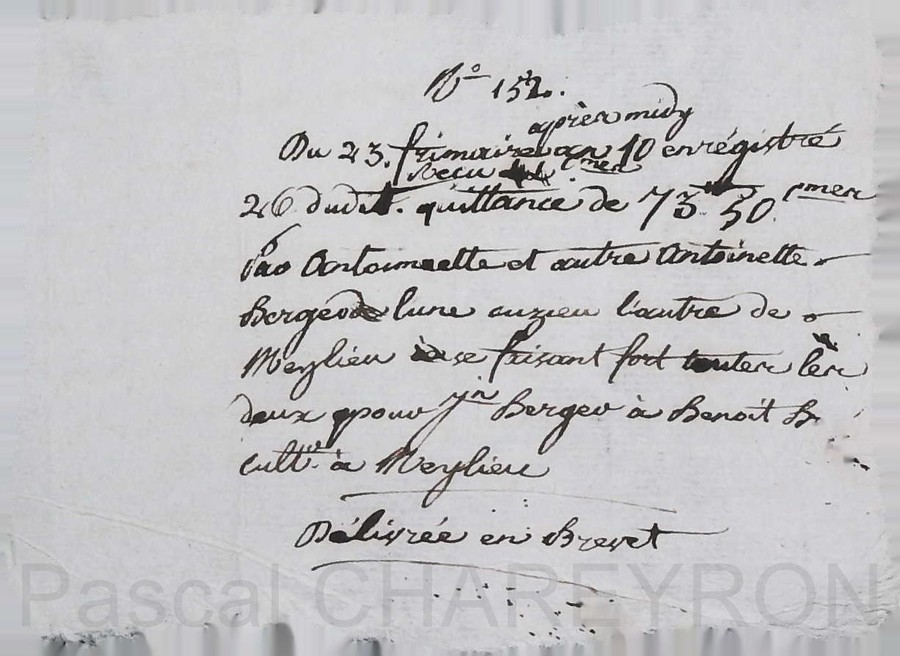 N° 152.
après midy
Du 23. frimaire an 10 enrégistré
Recu cmes
26 dudt. quittance de 73 50 cmes
Par Antoinette et autre Antoinette
Berger lune auzieu l'autre de
Meylieu se faisant fort toutes les
deux pour jn Berger à Benoit B
cultr. à Meylieu
Délivrée en Brevet
Pascal CHAREYRON